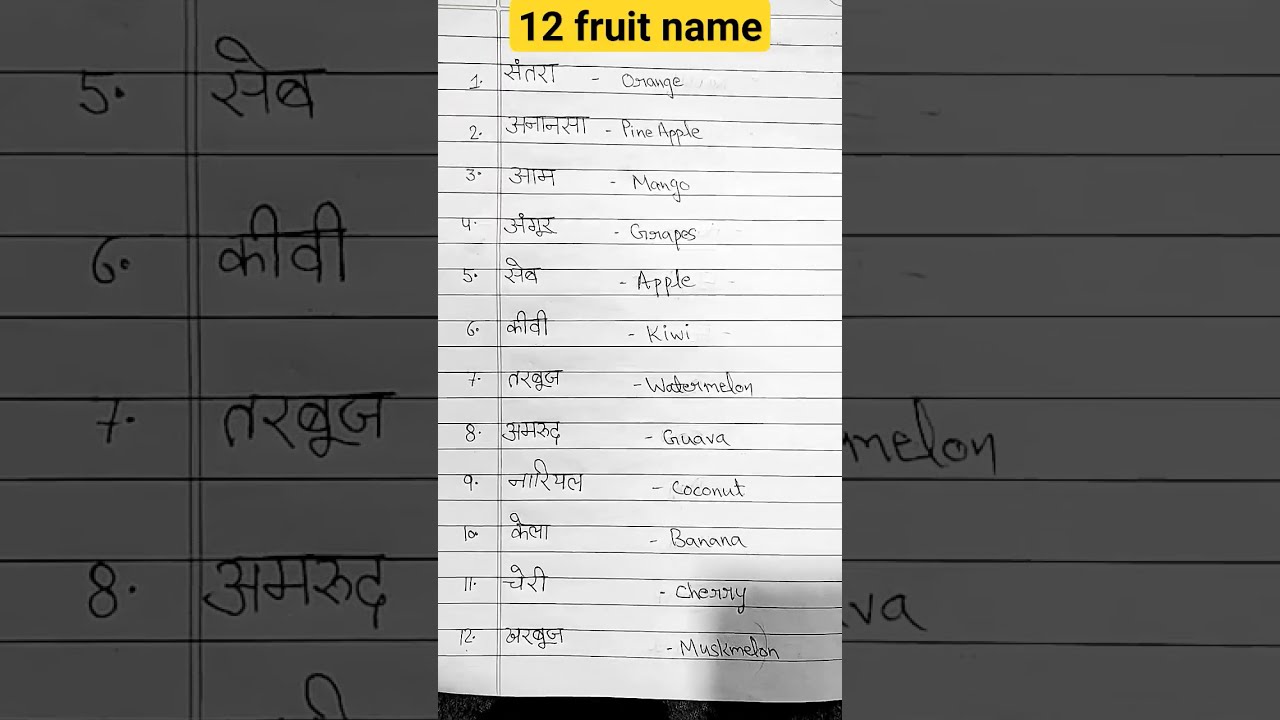 12 fruit name
1. संतरा - Orange
2. अनानसा - Pine Apple
3. आम - Mango
4. अंगूर - Grapes
5. सेब - Apple
6. कीवी - Kiwi
7. तरबूज - Watermelon
8. अमरुद - Guava
9. नारियल - Coconut
10 केला - Banana
11. चेरी - Cherry
12. खरबूज - Muskmelon
5. सेब
6. कीवी
7. तरबूज
melon
8. अमरुद
va